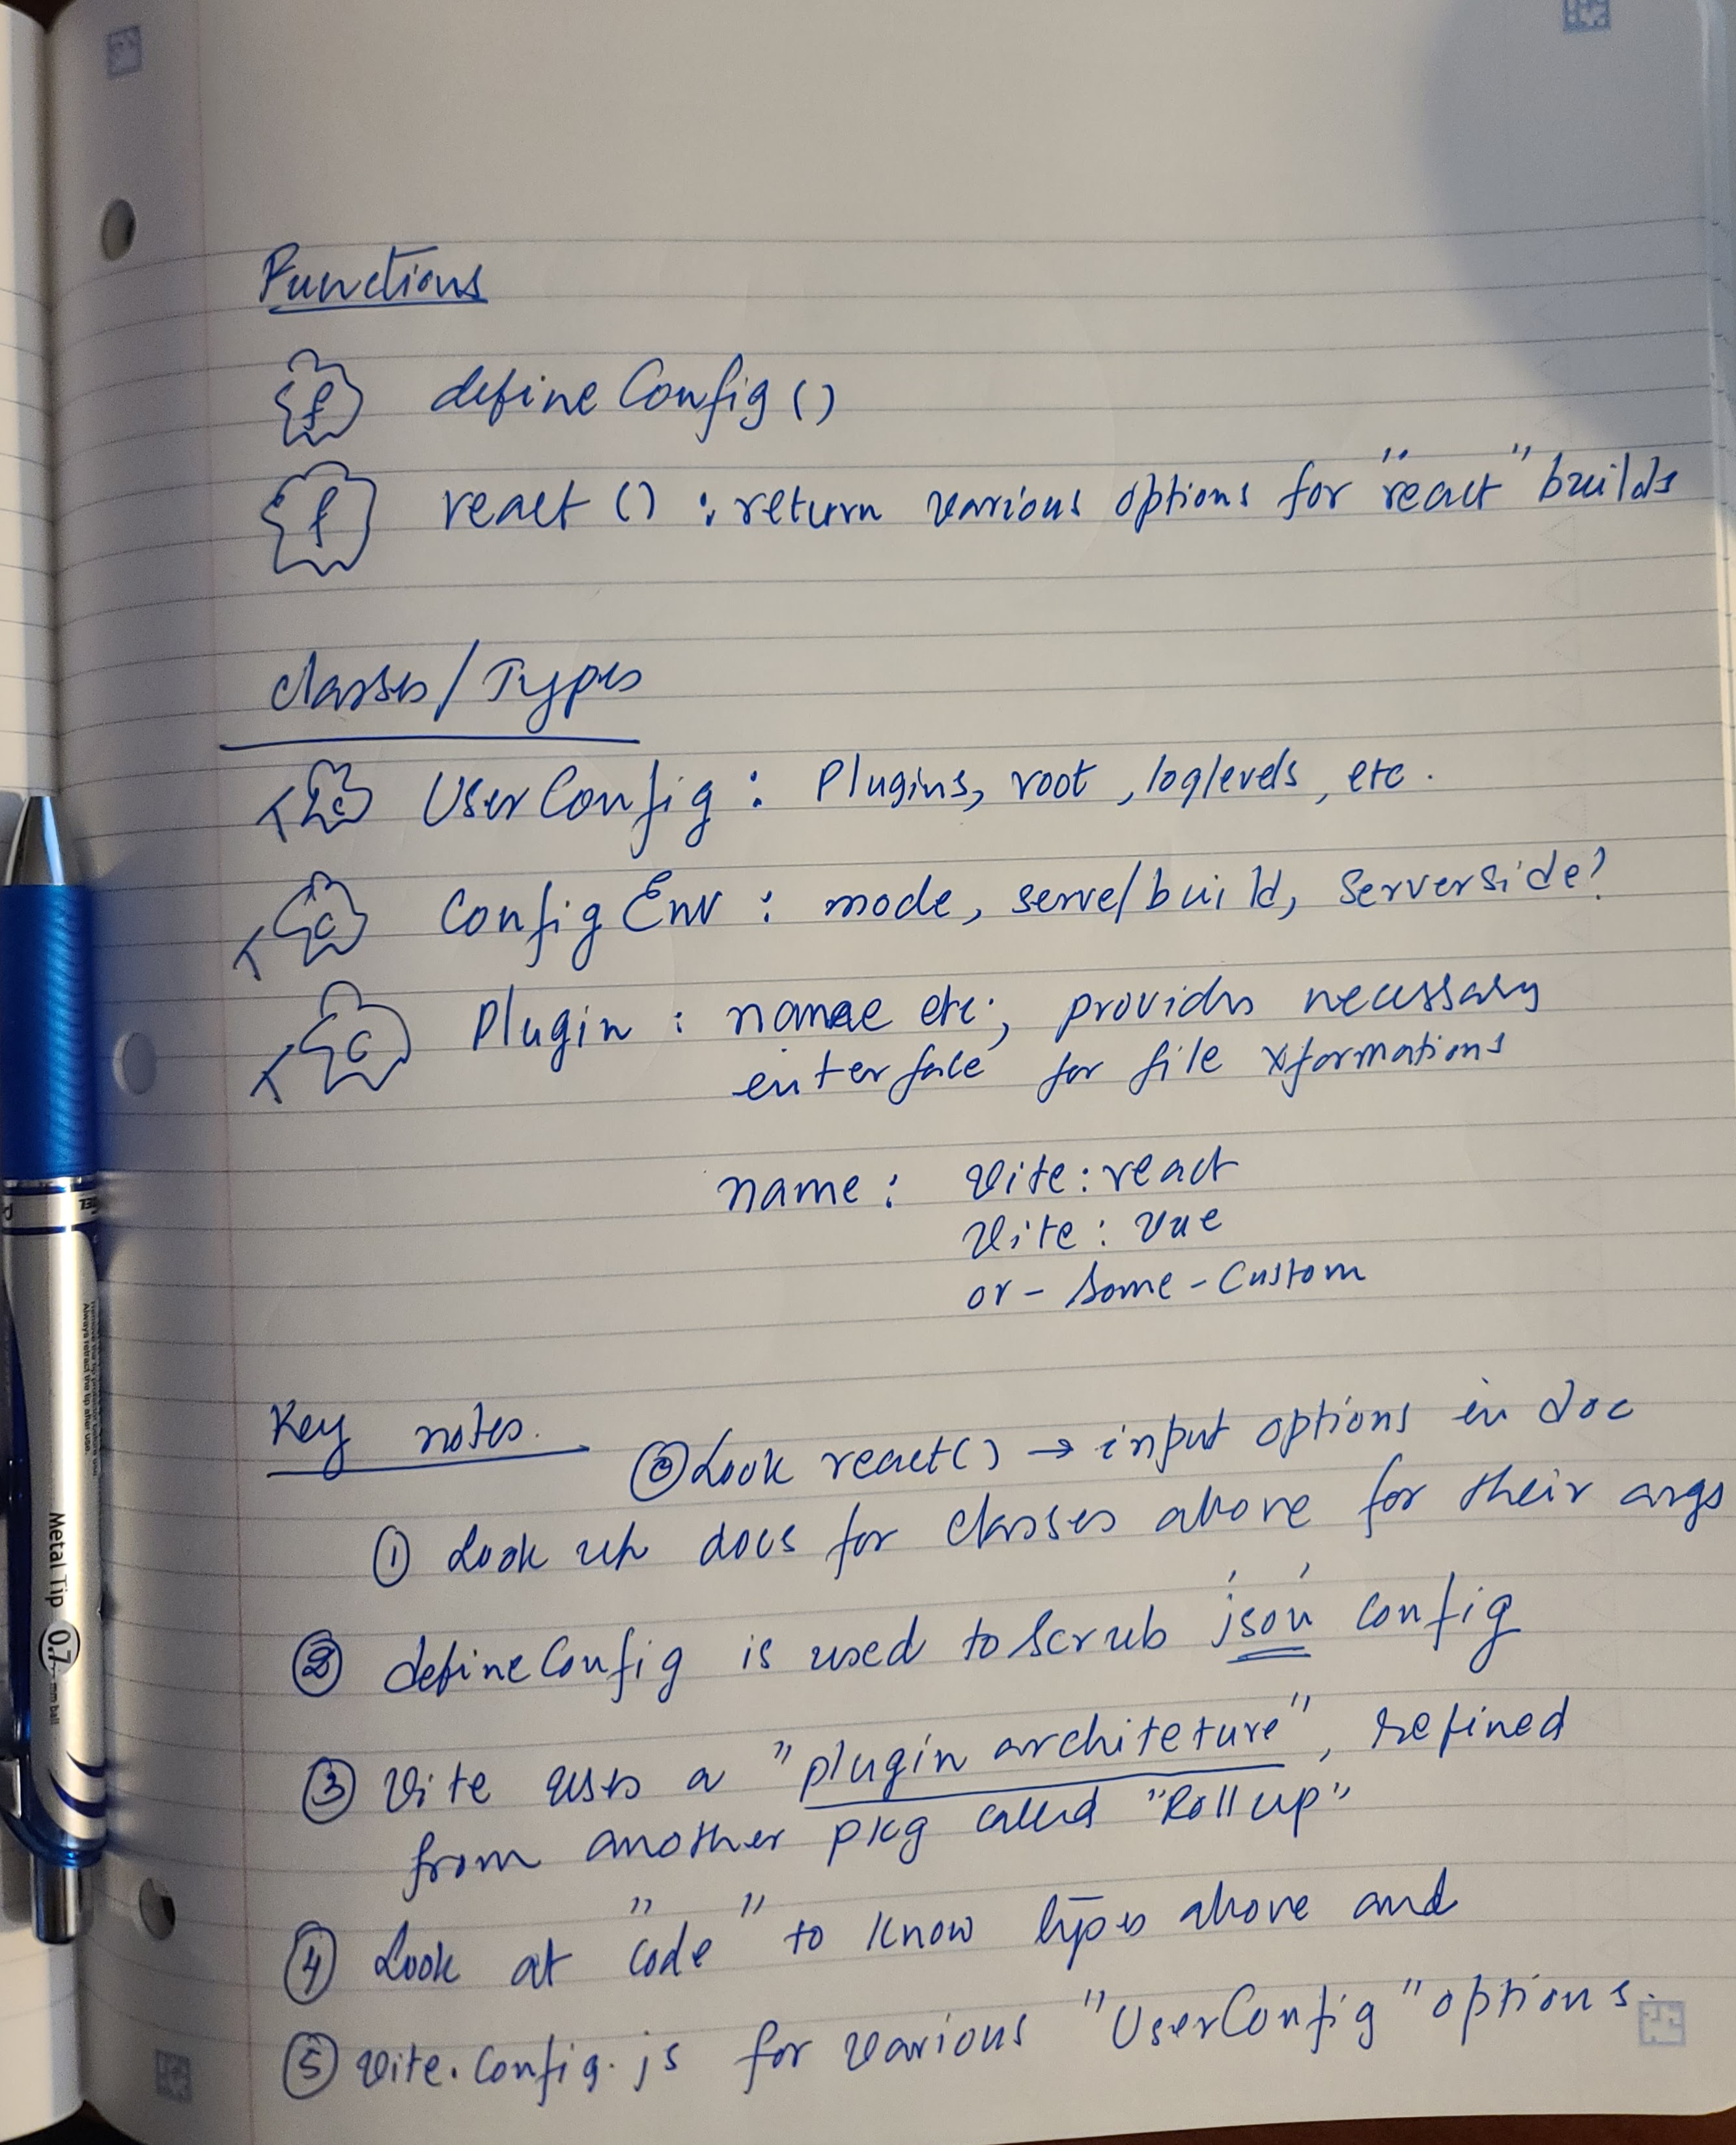 Functions
f defineConfig()
f react() : return various options for "react" builds
Classes/Types
T c UserConfig : Plugins, root, loglevels, etc.
T c ConfigEnv : mode, serve/build, Serverside?
T c Plugin : name etc; provides necessary
interface for file xformations
name : Vite:react
Vite: vue
or-some-Custom
Key notes.
⓪ Look react() → input options in doc
① Look up docs for classes above for their args
② defineConfig is used to scrub 'json' config
③ Vite uses a "plugin architeture", refined
from another pkg called "Rollup"
④ Look at "code" to know types above and
⑤ vite.config.js for various "UserConfig" options.
Metal Tip 0.7 mm ball